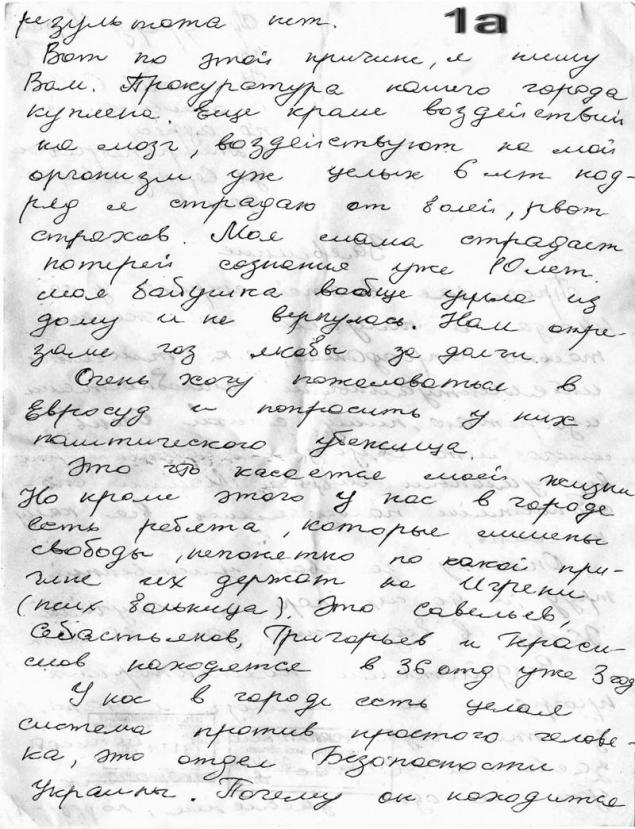 результата нет.
1а
Вот по этой причине, я пишу
Вам. Прокуратура нашего города
куплена. Еще краме воздействий
на мозг, воздействуют на мой
организм уже целых 6 лет под-
ряд я страдаю от болей, рвот
страхов. Моя мама страдает
потерей сознания уже 10 лет.
моя бабушка вообще ушла из
дому и не вернулась. Нам отре-
зали газ якобы за долги.
Очень хочу пожаловаться в
Евросуд и попросить у них
политического убежища.
Это что касается моей жизни
Но кроме этого у нас в городе
есть ребята, которые лишены
свободы, непонятно по какой при-
чине их держат на Игрени
(псих больница). Это Савельев,
Себастьянов, Григорьев и Краси-
лов находятся в 36 отд уже 3 год
У нас в городе есть целая
система против простого челове-
ка, это отдел Безопастности
Украины. Почему он находится